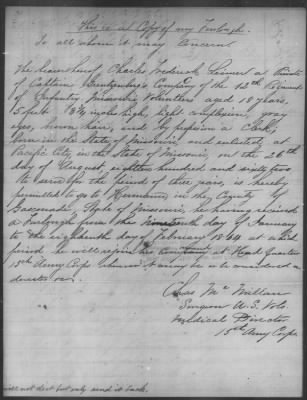 This is a Copy of my Furlough.
To all whom it may Concern
The bearer hereof Charles Frederick a Private
of Captain Company of the 12th Regiment
of Infantry Missouri Volunteers aged 18 years.
5 feet 8¾ inches high, light complexion, gray
eyes, brown hair, and by profession a Clerk,
born in the State of Missouri, and enlisted at
Pacific City in the State of Missouri, on the 20th
day of August eighteen hundred and sixty two
to serve for the period of three years, is hereby
permitted to go to Hermann in the County of
Gasconade State of Missouri, he having received
a Furlough from the Nineteenth day of January
to the eighteenth day of February 1864 at which
period he will rejoin his Company at Head Quarters
15th Army Corps or be considered a
deserter
Chas Mc Millan
Surgeon U.S. Vols.
Medical Director
15th Army Corps
will not do it but only send it back.